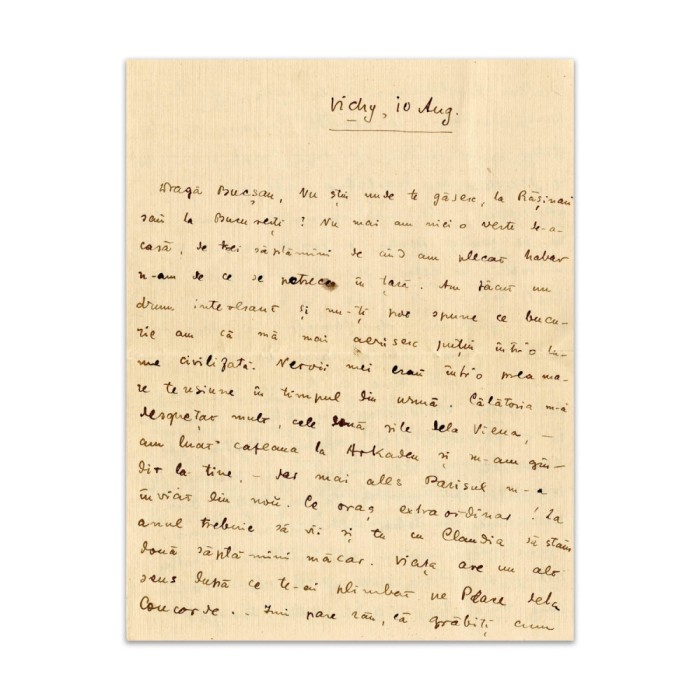 Vichy, 10 Aug.
Dragă Bucșan, Nu știu unde te găsesc, la Rășinari
sau la București? Nu mai am nici o veste de-a-
casă, de trei săptămîni de cînd am plecat habar
n-am de ce se petrece în țară. Am făcut un
drum interesant și nu-ți pot spune ce bucu-
rie am că mă mai aerisesc puțin într'o lu-
me civilizată. Nervii mei erau într'o prea ma-
re tensiune în timpul din urmă. Călătoria m-a
deșteptat mult, cele două zile dela Viena, —
am luat cafeaua la Arkaden și m-am gîn-
dit la tine, — dar mai ales Parisul m-a
înviat din nou. Ce oraș extraordinar! La
anul trebuie să vii și tu cu Claudia să stați
două săptămîni măcar. Viața are un alt
sens după ce te-ai plimbat pe Place dela
Concorde. . Îmi pare rău, că grăbiți cum